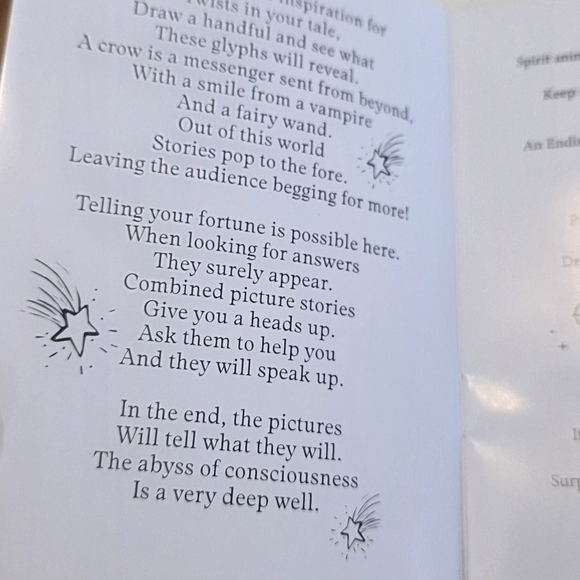 inspiration for
Twists in your tale,
Draw a handful and see what
These glyphs will reveal.
A crow is a messenger sent from beyond,
With a smile from a vampire
And a fairy wand.
Out of this world
Stories pop to the fore.
Leaving the audience begging for more!
Telling your fortune is possible here.
When looking for answers
They surely appear.
Combined picture stories
Give you a heads up.
Ask them to help you
And they will speak up.
In the end, the pictures
Will tell what they will.
The abyss of consciousness
Is a very deep well.
Spirit anim
Keep
An Endi
Dr
Surp